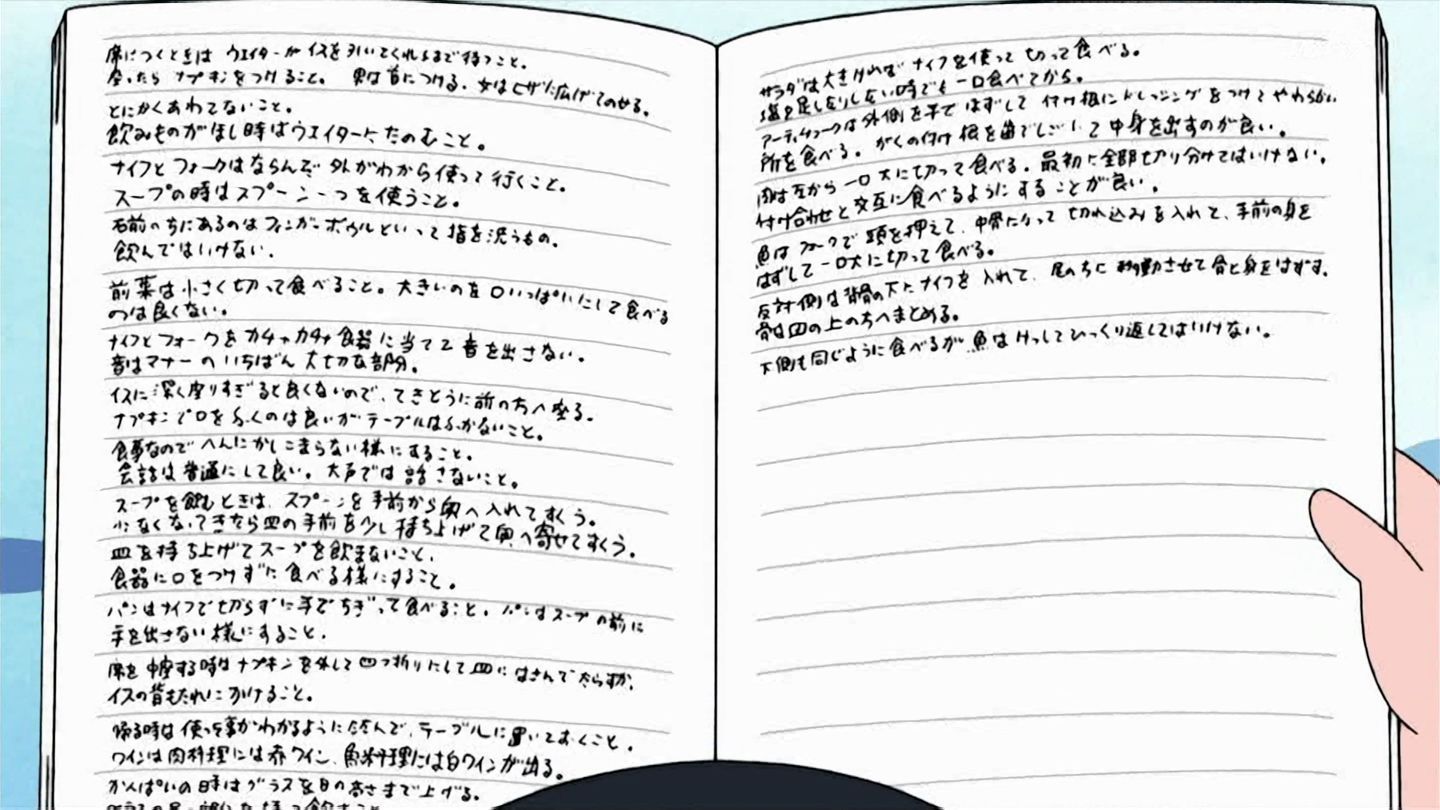 席につくときは ウエイターが イスを引いてくれるまで待つこと。
座ったら ナプキンをつけること。 男は首につける、女はヒザに広げてのせる。
とにかくあわてないこと。
飲みものがほし時はウエイターにたのむこと。
ナイフとフォークはならんだ外がわから使って行くこと。
スープの時はスプーン一つを使うこと。
右前の方にあるのはフィンガーボウルといって指を洗うもの。
飲んではいけない。
前菜は小さく切って食べること。大きいのを口いっぱいにして食べる
のは良くない。
ナイフとフォークをカチャカチャ食器に当てて音を出さない。
音はマナーのいちばん大切な部分。
イスに深く座りすぎると良くないので、てきとうに前の方へ座る。
ナプキンで口をふくのは良いがテーブルはふかないこと。
食事なのでへんにかしこまらない様にすること。
会話は普通にして良い。大声では話さないこと。
スープを飲むときは、スプーンを手前から奥へ入れてすくう。
少なくなってきたら皿の手前を少し持ち上げて奥へ寄せてすくう。
皿を持ち上げてスープを飲まないこと、
食器に口をつけずに食べる様にすること。
パンはナイフで切らずに手でちぎって食べること。パンはスープの前に
手を出さない様にすること、
席を中座する時はナプキンを外して四つ折りにして皿にはさんでたらすか、
イスの背もたれにかけること。
帰る時は使った事がわかるように たたんで、テーブルに置いておくこと、
ワインは肉料理には赤ワイン、魚料理には白ワインが出る。
かんぱいの時はグラスを目の高さまで上げる。
サラダは大きければナイフを使って切って食べる。
塩を足したりしない時でも一口食べてから。
アーティチョークは外側を手ではずして付け根にドレッシングをつけてやわらかい
所を食べる。がくの付け根を歯でしごいて中身を出すのが良い。
肉は左から一口大に切って食べる。最初に全部切り分けてはいけない。
付け合わせと交互に食べるようにすることが良い。
魚はフォークで頭を押えて、中骨にそって切れ込みを入れて、手前の身を
はずして一口大に切って食べる。
反対側は背骨の下にナイフを入れて、尾の方に移動させて骨と身をはずす。
骨は皿の上の方へまとめる。
下側も同じように食べるが魚はけっしてひっくり返してはいけない。